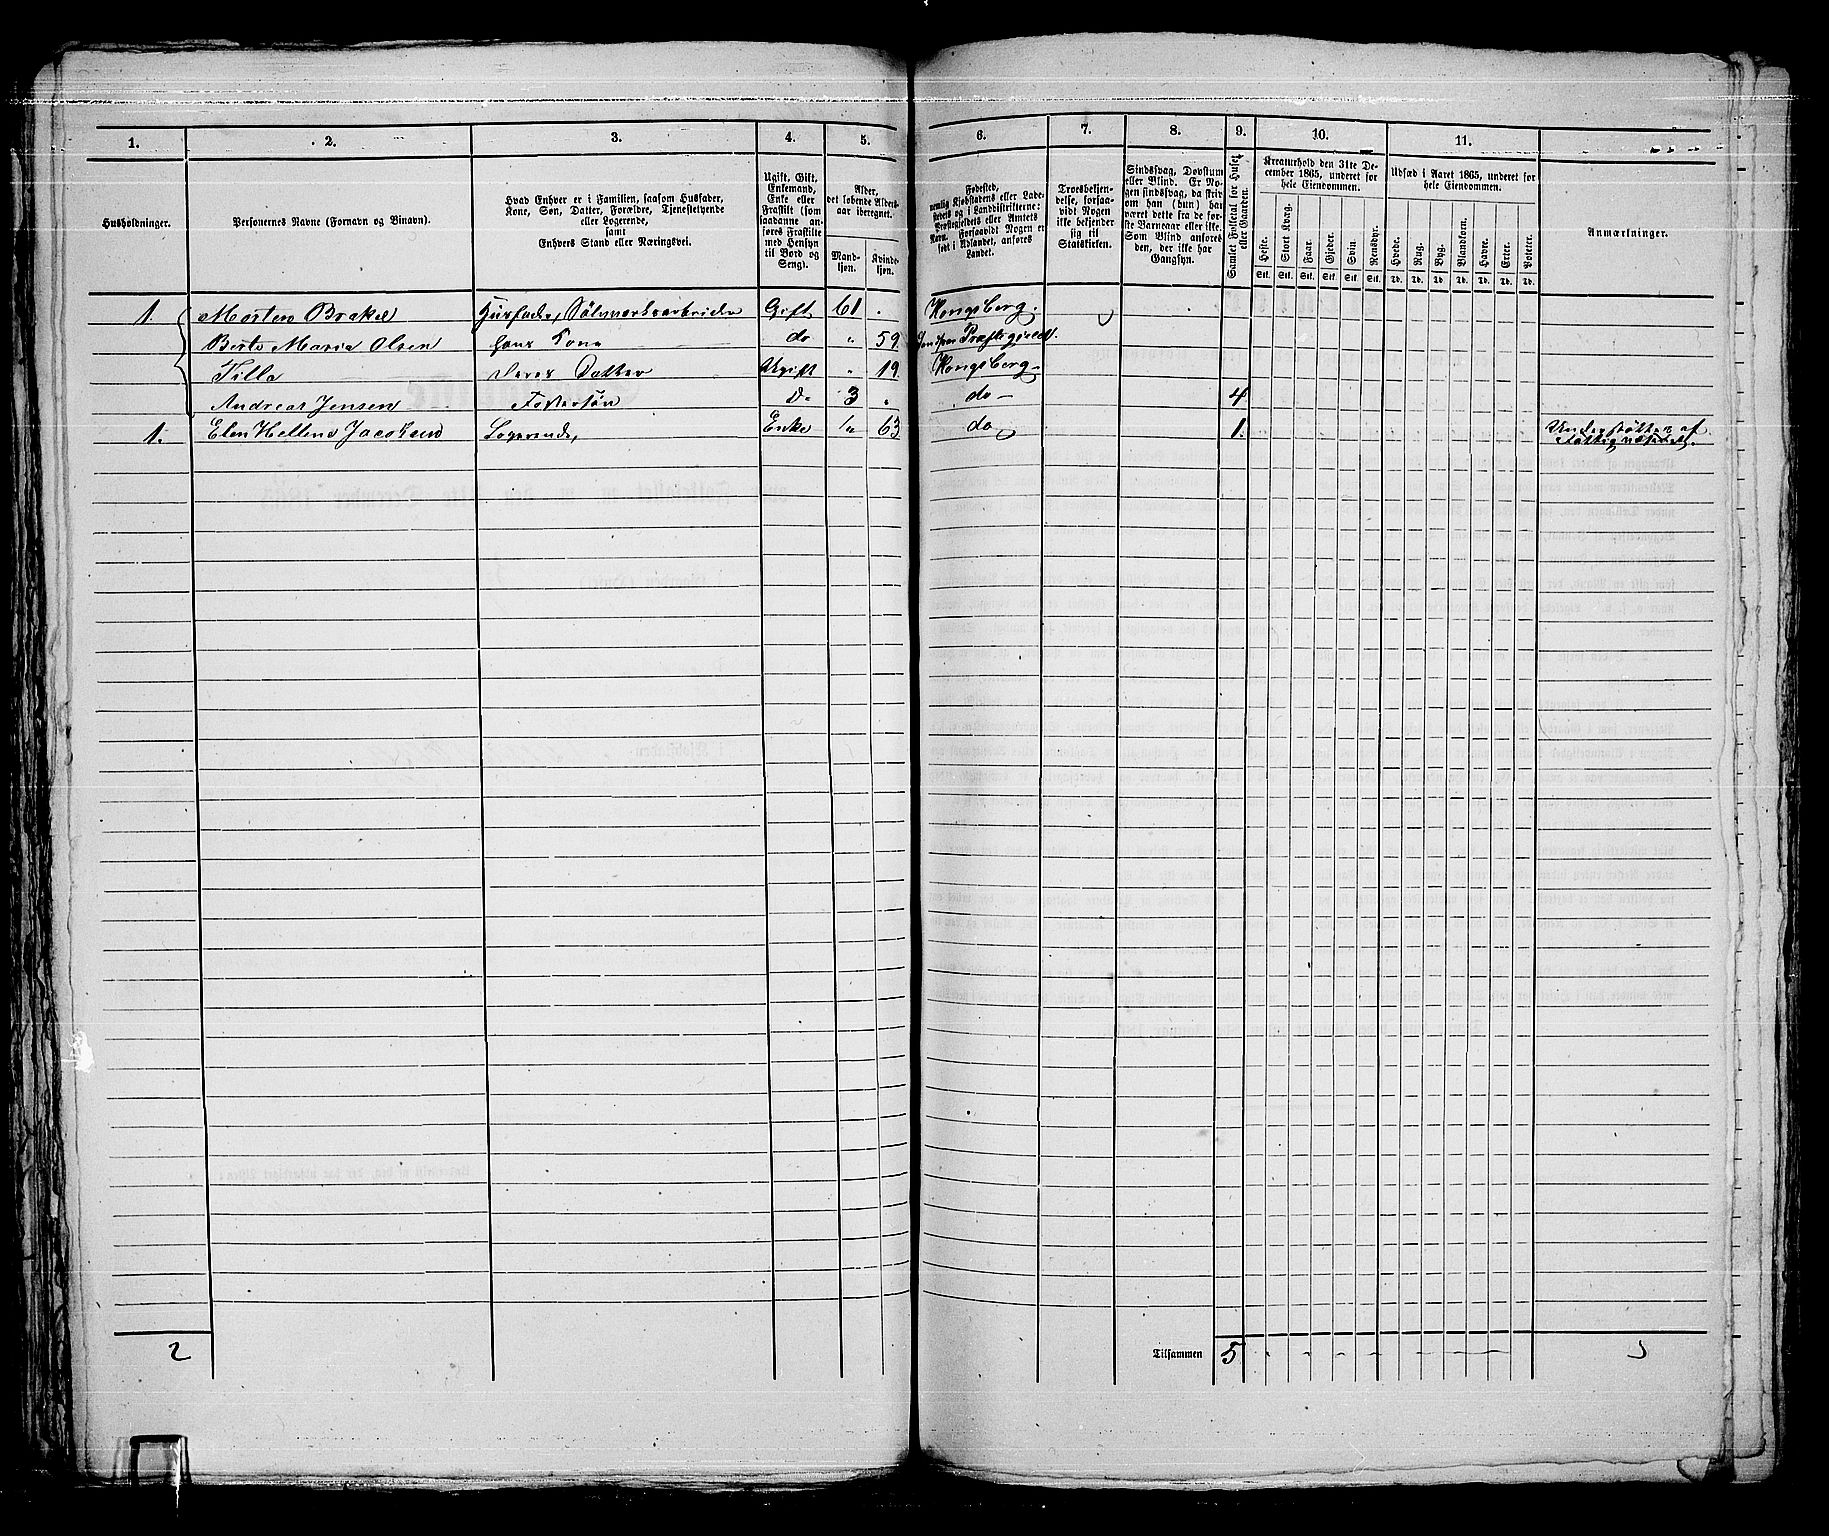 1. 2. 3. 4. 5. 6. 7. 8. 9. 10. 11.
Husholdninger.
Personernes Navne (Fornavn og Binavn).
Hvad Enhver er i Familien, saasom Husfader,
Kone, Søn, Datter, Forældre, Tjenestetyende
eller Logerende,
samt
Enhvers Stand eller Næringsvei.
Ugift, Gift,
Enkemand,
Enke eller
Fraskilt (som
saadanne an-
føres Fraskilte
med Hensyn
til Bord og
Seng).
Alder,
det løbende Alders-
aar iberegnet.
Mand-
kjøn.
Kvinde-
kjøn.
Fødested,
nemlig Kjøbstadens eller Lade-
stedets og i Landdistrikterne:
Præstegjeldets eller Amtets
Navn. Forsaavidt Nogen er
født i Udlandet, anføres
Landet.
Troesbekjen-
delse, forsaa-
vidt Nogen
ikke bekjender
sig til
Statskirken.
Sindssvag, Døvstum
eller Blind. Er No-
gen sindssvag, da skriv
om han (hun) har
været dette fra de før-
ste Barneaar eller ikke.
Som Blind anføres
den, der ikke har
Gangsyn.
Samlet Folketal for Huset
eller Gaarden.
Kreaturhold den 31te De-
cember 1865, underet for
hele Eiendommen.
Heste. Stort Kvæg. Faar. Gjeder. Svin. Rensdyr.
Stk. Stk. Stk. Stk. Stk. Stk.
Udsæd i Aaret 1865, underet for
hele Eiendommen.
Hvede. Rug. Byg. Blandkorn. Havre. Erter. Poteter.
Td. Td. Td. Td. Td. Td. Td.
Anmærkninger.
1. Morten Brakel Husfader, Sölvværksarbeider Gift 61 Kongsberg.
Berte Maria Olsen hans Kone do " 59 Præstegjeld.
Tilla deres Datter Ugift " 19 Kongsberg
Andreas Jensen Fostersön do 3 " do 4
1. Elen Hellene Jacobsen Logerende, Enke " 63 do 1. Understöttes af
Fattigvæsenet.
2 Tilsammen 5